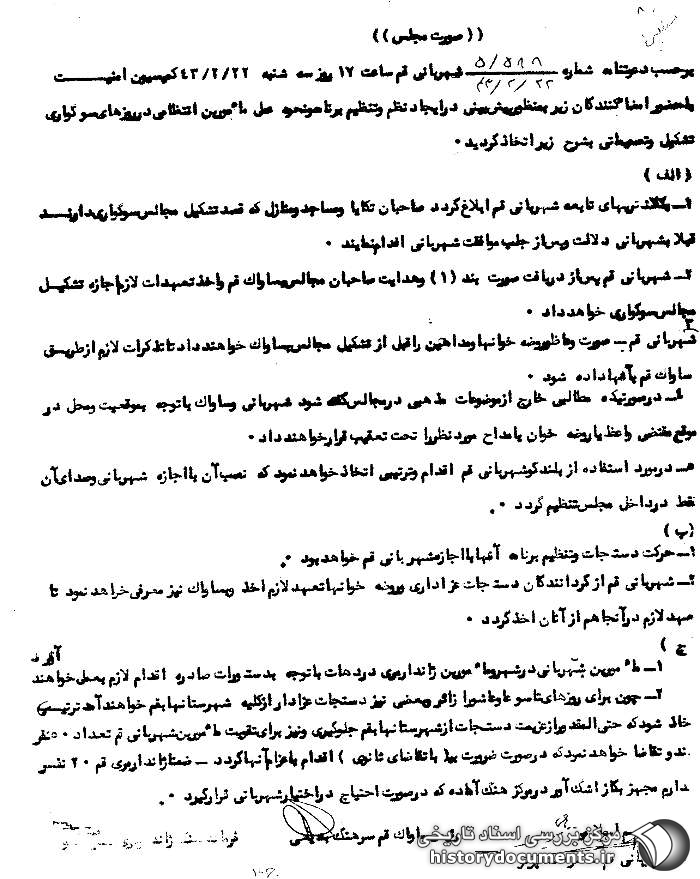 ((صورت مجلس))
برحسب دعوتنامه شماره ۵/۵۸۸ شهربانی قم ساعت ۱۷ روز سه شنبه ۴۳/۲/۲۲ کمیسیون امنیت
۴۳/۲/۲۲
باحضور امضا کنندگان زیر بمنظور پیش بینی در ایجاد نظم وتنظیم برنامه ونحوه عمل مأمورین انتظامی در روزهای سوگواری
تشکیل وتصمیماتی بشرح زیر اتخاذ گردید ۰
(الف)
۱ــ بکلانتریهای تابعه شهربانی قم ابلاغ گردد صاحبان تکایا ومساجد ومنازل که قصد تشکیل مجالس سوگواری دارند
قبلا بشهربانی دلالت وپس از جلب موافقت شهربانی اقدام نمایند ۰
۲ــ شهربانی قم پس از دریافت صورت بند (۱) وهدایت صاحبان مجالس بساواک قم واخذ تعهدات لازم اجازه تشکیل
مجالس سوگواری خواهد داد ۰
۳
شهربانی قم ــ صورت وعاظ وروضه خوانها ومداحین را قبل از تشکیل مجالس بساواک خواهند داد تا تذکرات لازم از طریق
ساواک قم بآنها داده شود ۰
۴ــ در صورتیکه مطالبی خارج از موضوعات مذهبی در مجالس گفته شود شهربانی وساواک باتوجه بموقعیت ومحل در
موقع مقتضی واعظ یاروضه خوان یامداح مورد نظر را تحت تعقیب قرار خواهند داد ۰
۵ــ در مورد استفاده از بلندگو شهربانی قم اقدام وترتیبی اتخاذ خواهد نمود که نصب آن با اجازه شهربانی وصدای آن
فقط در داخل مجلس تنظیم گردد ۰
(ب)
۱ــ حرکت دستجات وتنظیم برنامه آنها با اجازه شهربانی قم خواهد بود ۰
۲ــ شهربانی قم از گردانندگان دستجات عزاداری وروضه خوانها تعهد لازم اخذ وبساواک نیز معرفی خواهد نمود تا
تعهد لازم در آنجا هم از آنان اخذ گردد ۰
ج)
۱ــ مأمورین شهربانی در شهر ومأمورین ژاندارمری در دهات باتوجه بدستورات صادره اقدام لازم بعمل خواهند
آورد
۲ــ چون برای روزهای تاسوعا وعاشورا زائر وبعضی نیز دستجات عزادار از کلیه شهرستانها بقم خواهند آمد ترتیبی
اتخاذ شود که حتی المقدور از عزیمت دستجات از شهرستانها بقم جلوگیری ونیز برای تقویت مأمورین شهربانی قم تعداد ۵۰ نفر
و تقاضا خواهد نمود که در صورت ضرورت (باتقاضای ثانوی) اقدام باعزام آنها گردد ــ ضمنا ژاندارمری قم ۲۰ نفر
ژاندارم مجهز بگاز اشک آور در مرکز هنگ آماده که در صورت احتیاج در اختیار شهربانی قرار گیرد ۰
ساواک قم سرهنگ بدیعی
مرکز بررسی اسناد تاریخی
historydocuments.ir